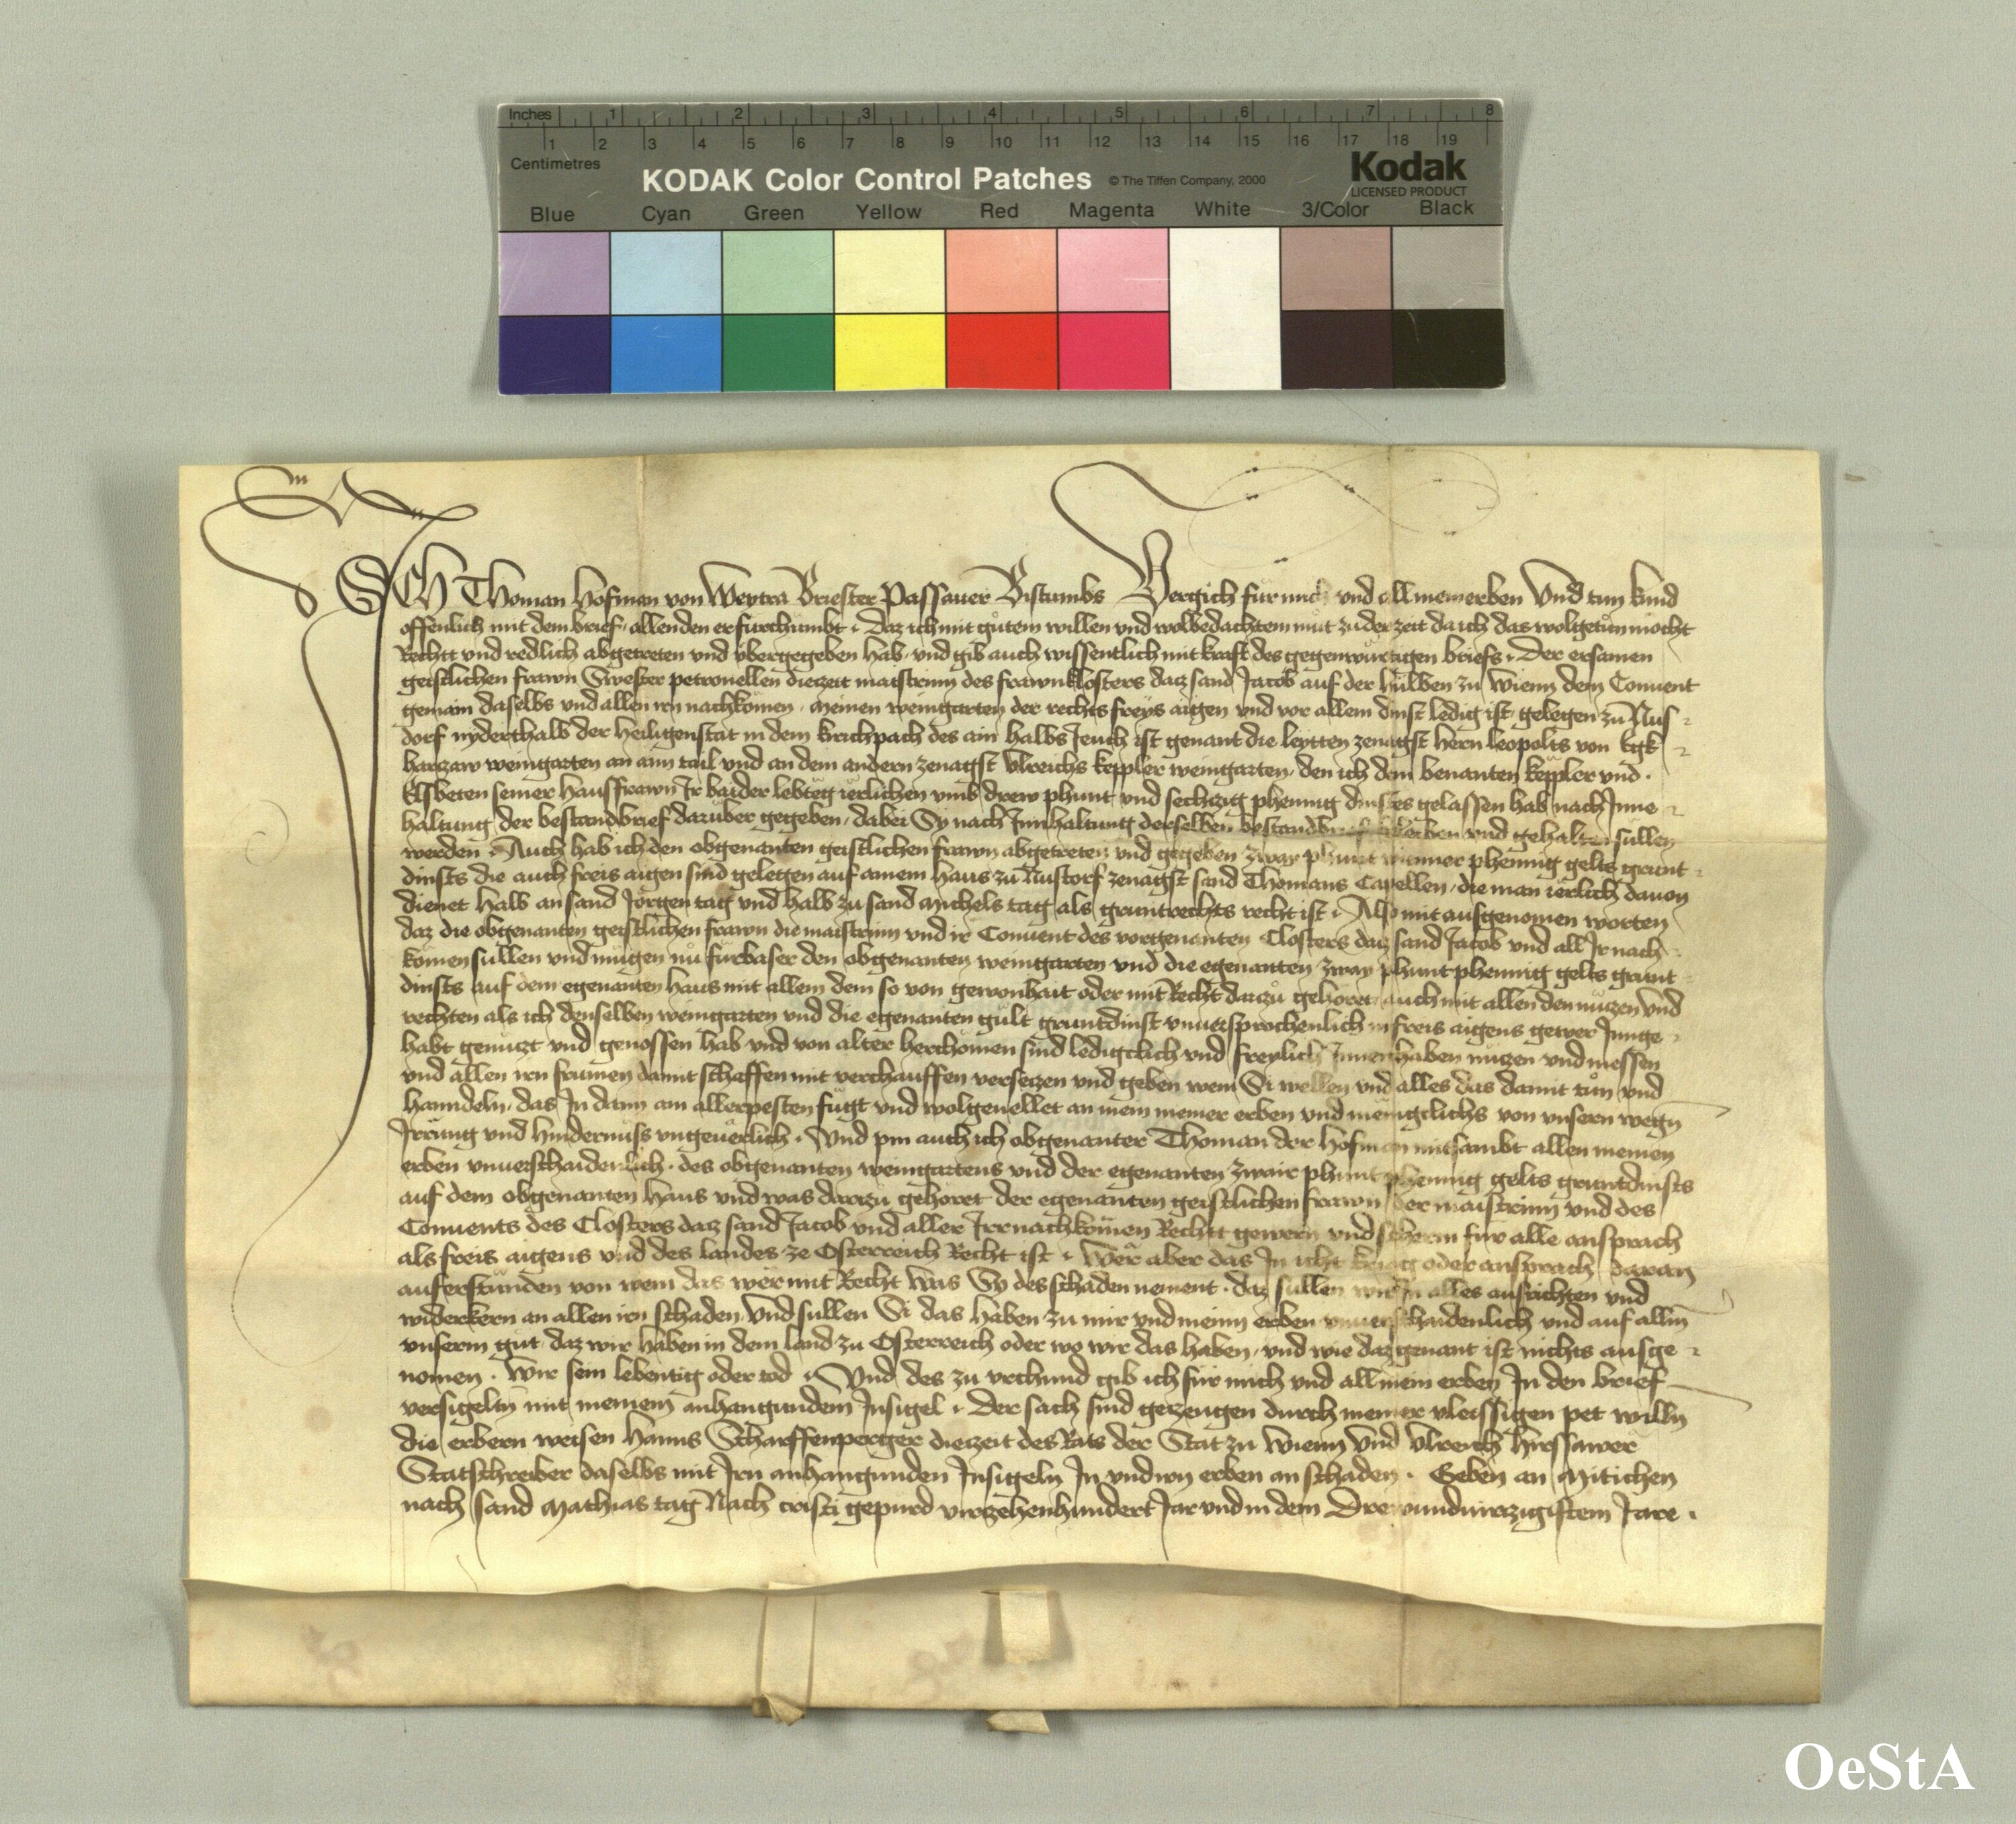 Inches 1 2 3 4 5 6 7 8
1 2 3 4 5 6 7 8 9 10 11 12 13 14 15 16 17 18 19
Centimetres
KODAK Color Control Patches © The Tiffen Company, 2000 Kodak
LICENSED PRODUCT
Blue Cyan Green Yellow Red Magenta White 3/Color Black
ICH Thoman Hofman von Weytra Briester Passauer Bistumbs Vergich für mich und all mein erben Und tun kund
offenlich mit dem brief allen den er fürchumbt. Daz ich mit gütem willen und wolbedachtem müt zu der zeit da ich das wolgetün mocht
Rechtt und redlich abgetreten und ubergegeben hab und gib auch wissentlich mit kraft des gegenwürtigen briefs. Der ersamen
geistlichen frawn Swester petronellen diezeit maistrinn des frawnklosters datz sand Jacob auf der hülben zu Wienn dem Convent
gemain daselbs und allen irn nachkömen meinen weingarten der rechts freys aigen und vor allem dinst ledig ist gelegen zu Nus
dorf nyderthalb der Heiligenstat in dem krichpach des ain halbs Jeuch ist genant die leytten zenagst hern leopolts von Egk
hartzaw weingarten an aim tail und an dem andern zenagst Ulreichs keppler weingarten den ich dem benanten keppler und
Elsbeten seiner hausfrawn Ir baider lebteg ierlichen umb drew phunt und sechtzig phennig dinstes gelassen hab nach Inne
haltung der bestandbrief darüber gegeben dabei Sy nach Innhaltung derselben bestandbrief beleiben und gehalten sullen
werden. Auch hab ich den obgenanten geistlichen frawn abgetreten und gegeben zway phunt wienner phennig gelts grunt
dinsts die auch freis aigen sind gelegen auf ainem haus zu Nustorf zenagst sand Thomans Capellen die man ierlich davon
dienet halb an sand Jörgen tag und halb zu sand Michels tag als gruntrechts recht ist. Also mit ausgenomen worten
daz die obgenanten geistlichen frawn die maistrinn und ir Convent des vorgenanten Closters datz sand Jacob und all Ir nach
komen sullen und mügen nü fürbaser den obgenanten weingarten und die egenanten zway phunt phennig gelts grunt
dinsts auf dem egenanten haus mit allem dem so von gewonhait oder mit Recht dartzü gehöret auch mit allen den nutzen und
rechten als ich denselben weingarten und die egenanten gült gruntdinst unversprochenlich in freis aigens gewer Inne
habt genützt und genossen hab und von alter herchömen sind ledigclich und freylich Innenhaben nützen und niessen
und allen irn frümen damit schaffen mit verchauffen versetzen und geben wem Si wellen und alles das damit tün und
hanndeln das In dann am allerpesten fügt und wolgevellet an mein meiner erben und menigclichs von unsern wegn
Irrüng und hindernüss ungeverlich. Und pin auch ich obgenanter Thoman der Hofman mitsambt allen meinen
erben unverschaidenlich des obgenanten weingartens und der egenanten zwair phunt phennig gelts gruntdinsts
auf dem obgenanten haus und was dartzü gehöret der egenanten geistlichen frawn der maistrinn und des
Convents des Closters datz sand Jacob und aller Irr nachkömen Rechtt gewern und scherm für alle ansprach
als freis aigens und des landes ze Osterreich Recht ist. Wer aber das In icht krieg oder ansprach daran
auferstünden von wem das wer mit Recht was Sy des schaden nement. daz sullen wir In alles ausrichten und
widerkern an allen irn schaden Und sullen Si das haben zu mir und meinn erben unverschaidenlich und auf allm
unserm güt daz wir haben in dem land zu Osterreich oder wo wir das haben und wie daz genant ist nichts ausge
nomen. Wir sein lebentig oder tod. Und des zu urchund gib ich für mich und all mein erben In den brief
versigeltn mit meinem anhangundem Insigel. Der sach sind getzeugen durch meiner vleissigen pet willn
die erbern weisen Hanns Scharffenperger diezeit des Rats der Stat zu Wienn und Ulreich Hirssawer
Statschreiber daselbs mit Irn anhangunden Insigeln In und irn erben an schaden. Geben an Mitichen
nach sand Mathias tag Nach cristi gepurd virtzehenhundert Jar und in dem Drewundvirtzigistem Jare.
OeStA